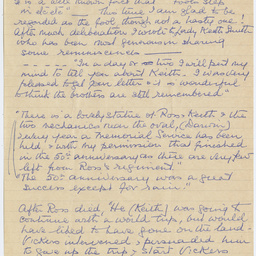 is a well known fact that "fools step
in etc." This time I am glad to be
regarded as the fool, though not a hasty one!
After much deliberation I wrote Lady Keith Smith
who has been most generous in sharing
some reminiscences
"In a day or two I will put my
mind to tell you about Keith. I was very
pleased to get your letter & is wonderful
to think the brothers are still remembered"
"There is a lovely statue of Ross & Keith & the
two mechanics near the oval, (Darwin)
every year a Memorial Service has been
held, & with my permission that finished
in the 50th anniversary as there are very few
left from Ross's regiment."
"The 50th anniversary was a great
success except for rain."
After Ross died "He (Keith) was going to
continue with a world trip, but would
have liked to have gone on the land.
Vickers intervened & persuaded him
to give up the trip & start Vickers